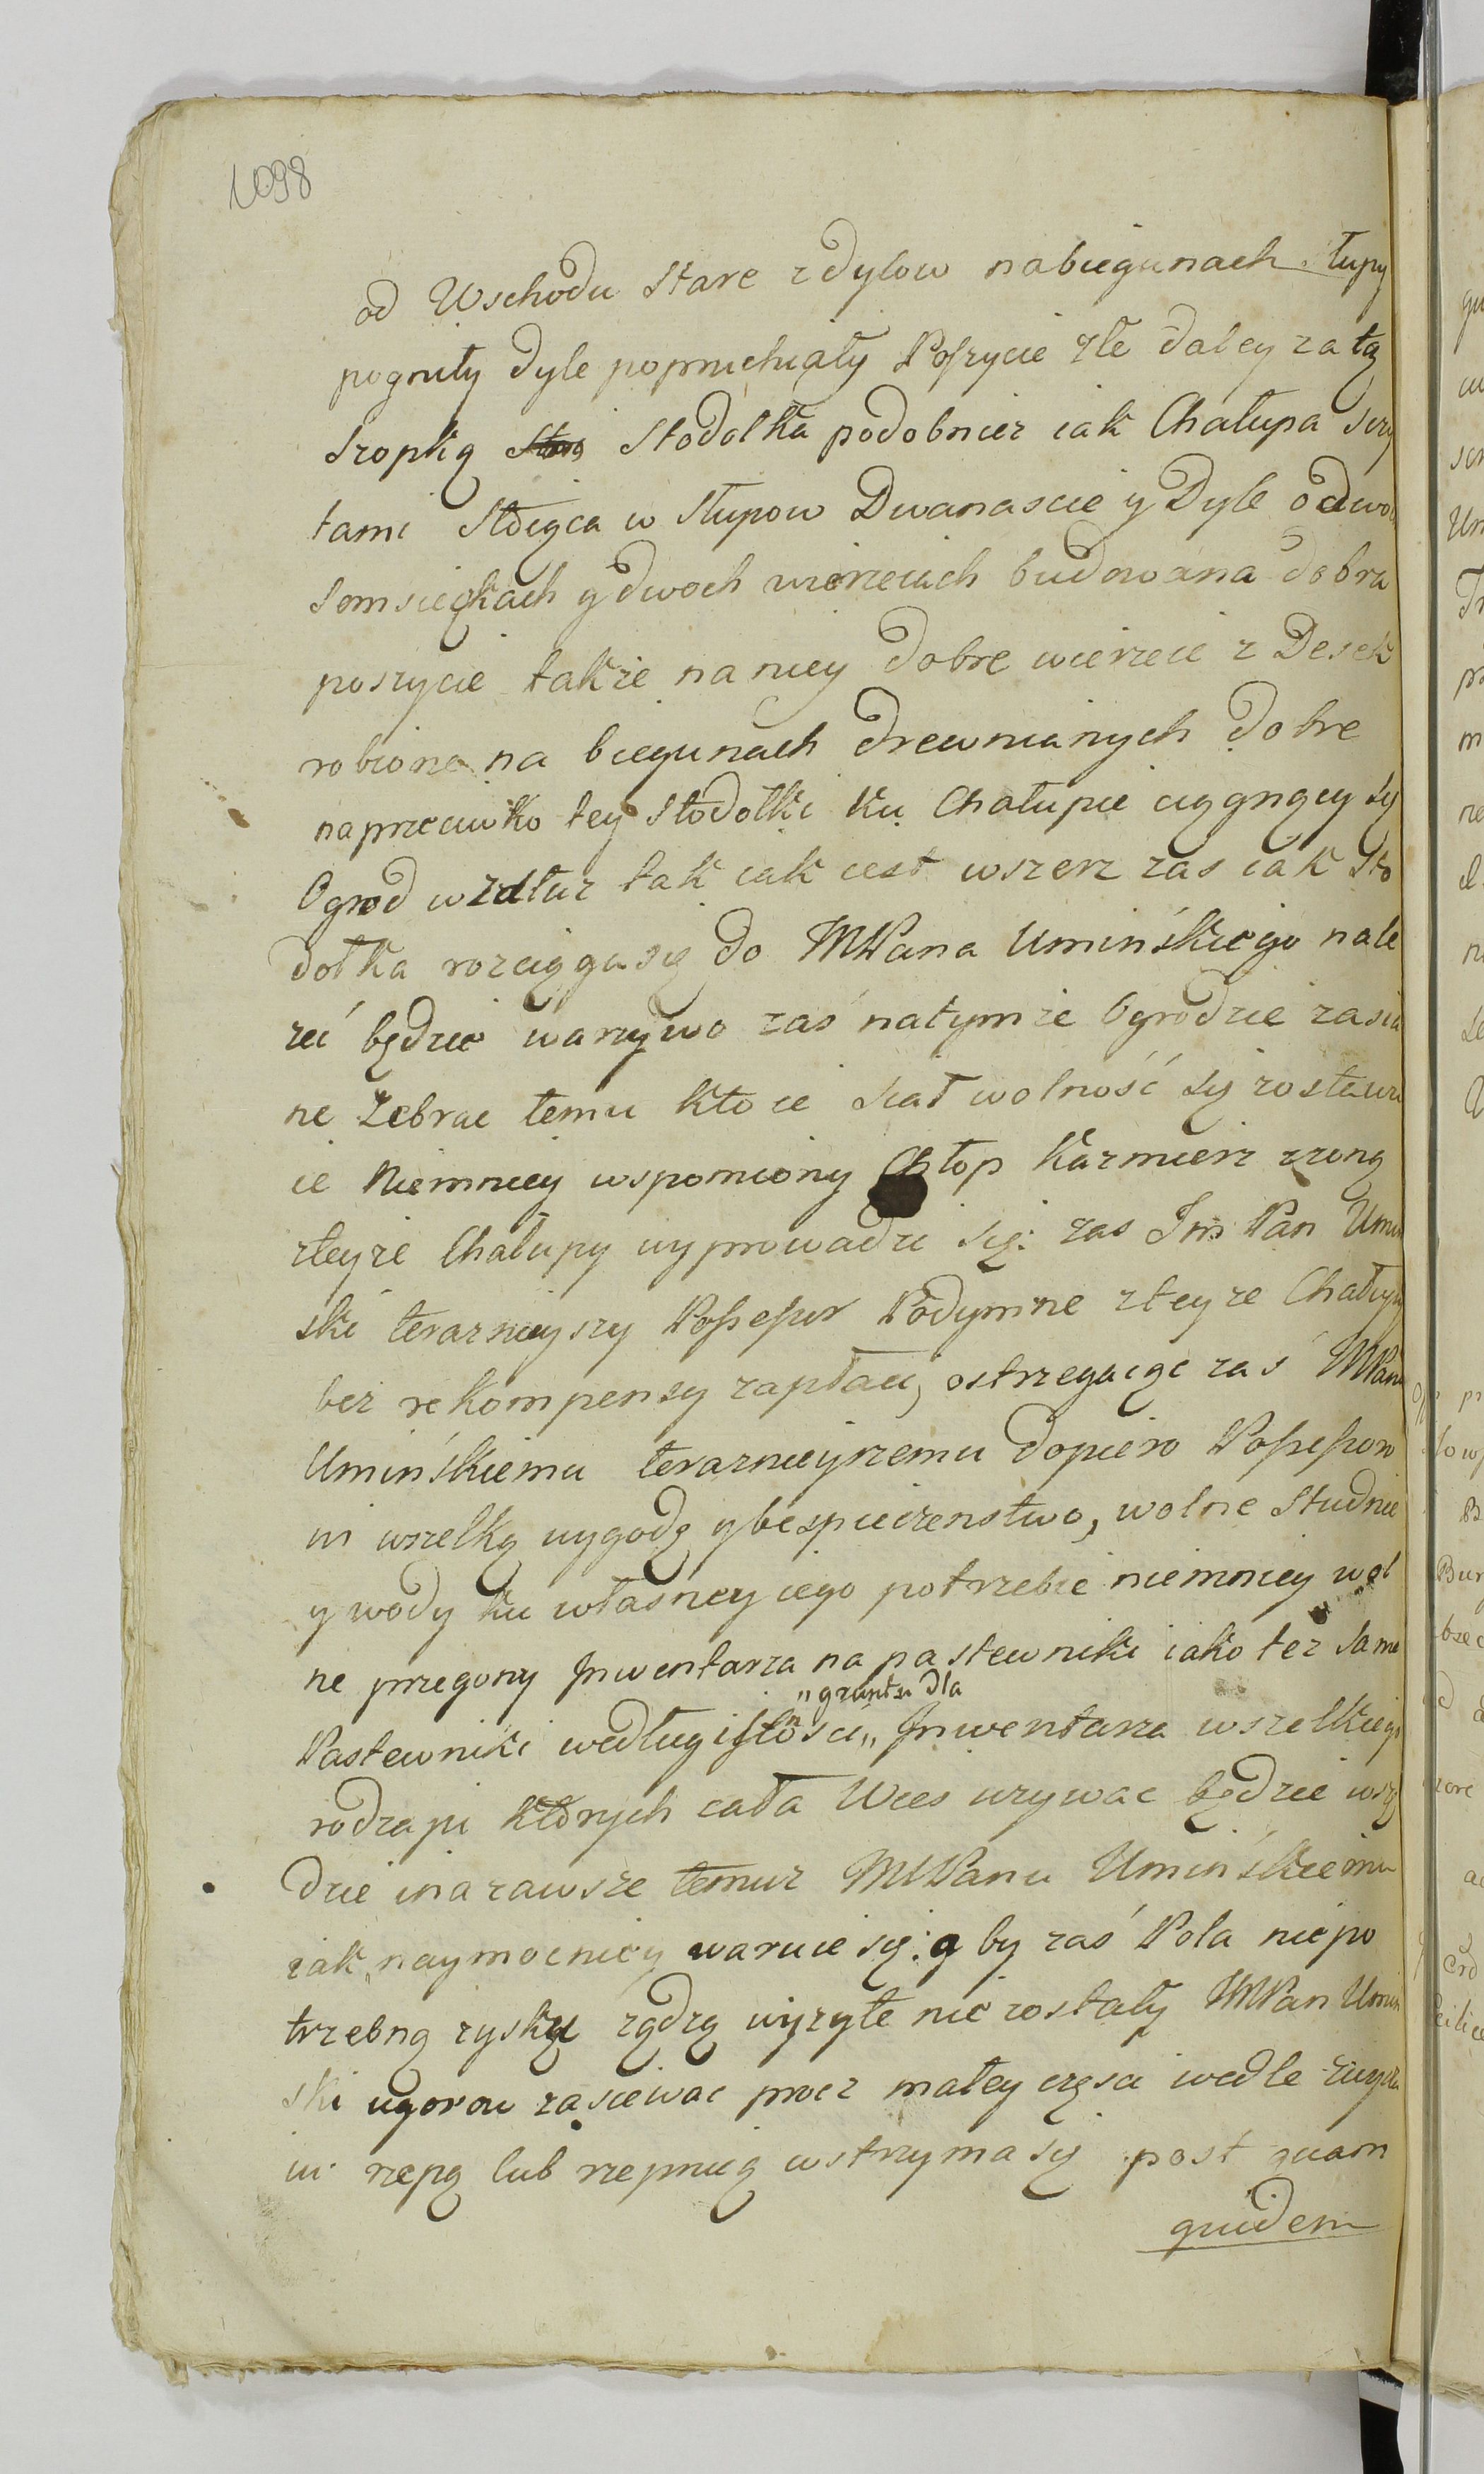 1098
od Wschodu stare z dylow nabiegunach słupy
pogniły dyle popruchiały Poszycie złe daley za tą
szopką stodołka podobnież iak Chałupa szczy
tami stoiąca w słupow Dwanascie y Dyle o dwoch
somsieckach y dwoch wierzeiach budowana dobra
poszycie także na niey dobre wierzeie z Desek
robione na biegunach drewnianych dobre
naprzeciwko tey stodołki ku Chałupie ciągnący sy
Ogrod wzdłuz tak iak iest wszerz zas iak sto
dołka rozciąga się do MPana Uminskiego nale
żeć będzie warzywo zaś natymże Ogrodzie zasia
ne Zebrac temu kto ie siał wolność sy zostawu
ie Niemniey wspomiony Chłop Kazmierz zżoną
zteyże Chałupy wyprowadzi się: zas Jm Pan Umin
ski teraznieyszy Possessor Podymne zteyże Chałupy
bez rekompensy zapłaci, ostrzegaiąc zas MPanu
Umińskiemu teraznieyszemu dopiero Possessoro
wi wszelką wygodę y bespieczenstwo, wolne studnie
y wody ku własney iego potrzebie niemniey wol
ne przegony Inwentarza na pastewniki iako też same
"gruntu dla
Pastewniki według istności" Inwentarza wszelkiego
rodzaju ktorych cała Wies uzywac będzie wszę
dzie inazawsze temuz MWPanu Umińskiemu
iak naymocniey waruie się: a by zaś Pola niepo
trzebną zysku rządzą wyzyte nie zostały MPan Umin
ski ugorow zasiewac procz małey częsci wedle zwycza
iu rzepą lub rzepnicą wstrzyma sy post quam
quidem